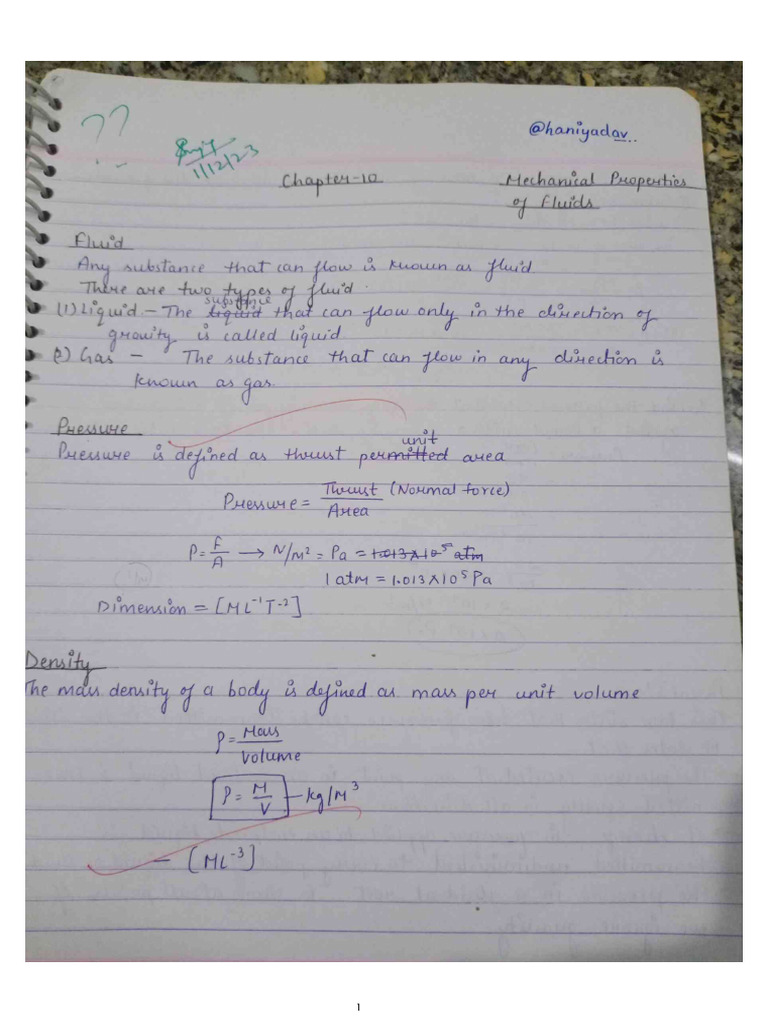 ??
@haniyadav..
1/12/23
Chapter-10 Mechanical Properties
of Fluids
Fluid
Any substance that can flow is known as fluid
There are two types of fluid.
substance
(1) Liquid – The liquid that can flow only in the direction of
gravity is called liquid
2) Gas – The substance that can flow in any direction is
known as gas.
Pressure
unit
Pressure is defined as thrust permitted area
Pressure = Thrust (Normal force)
Area
P = F/A → N/M² = Pa = 1.013×10⁵ atm
1 atm = 1.013×10⁵ Pa
Dimension = [ML⁻¹T⁻²]
Density
The mass density of a body is defined as mass per unit volume
ρ = Mass
Volume
ρ = M/V – kg/M³
– [ML⁻³]
1